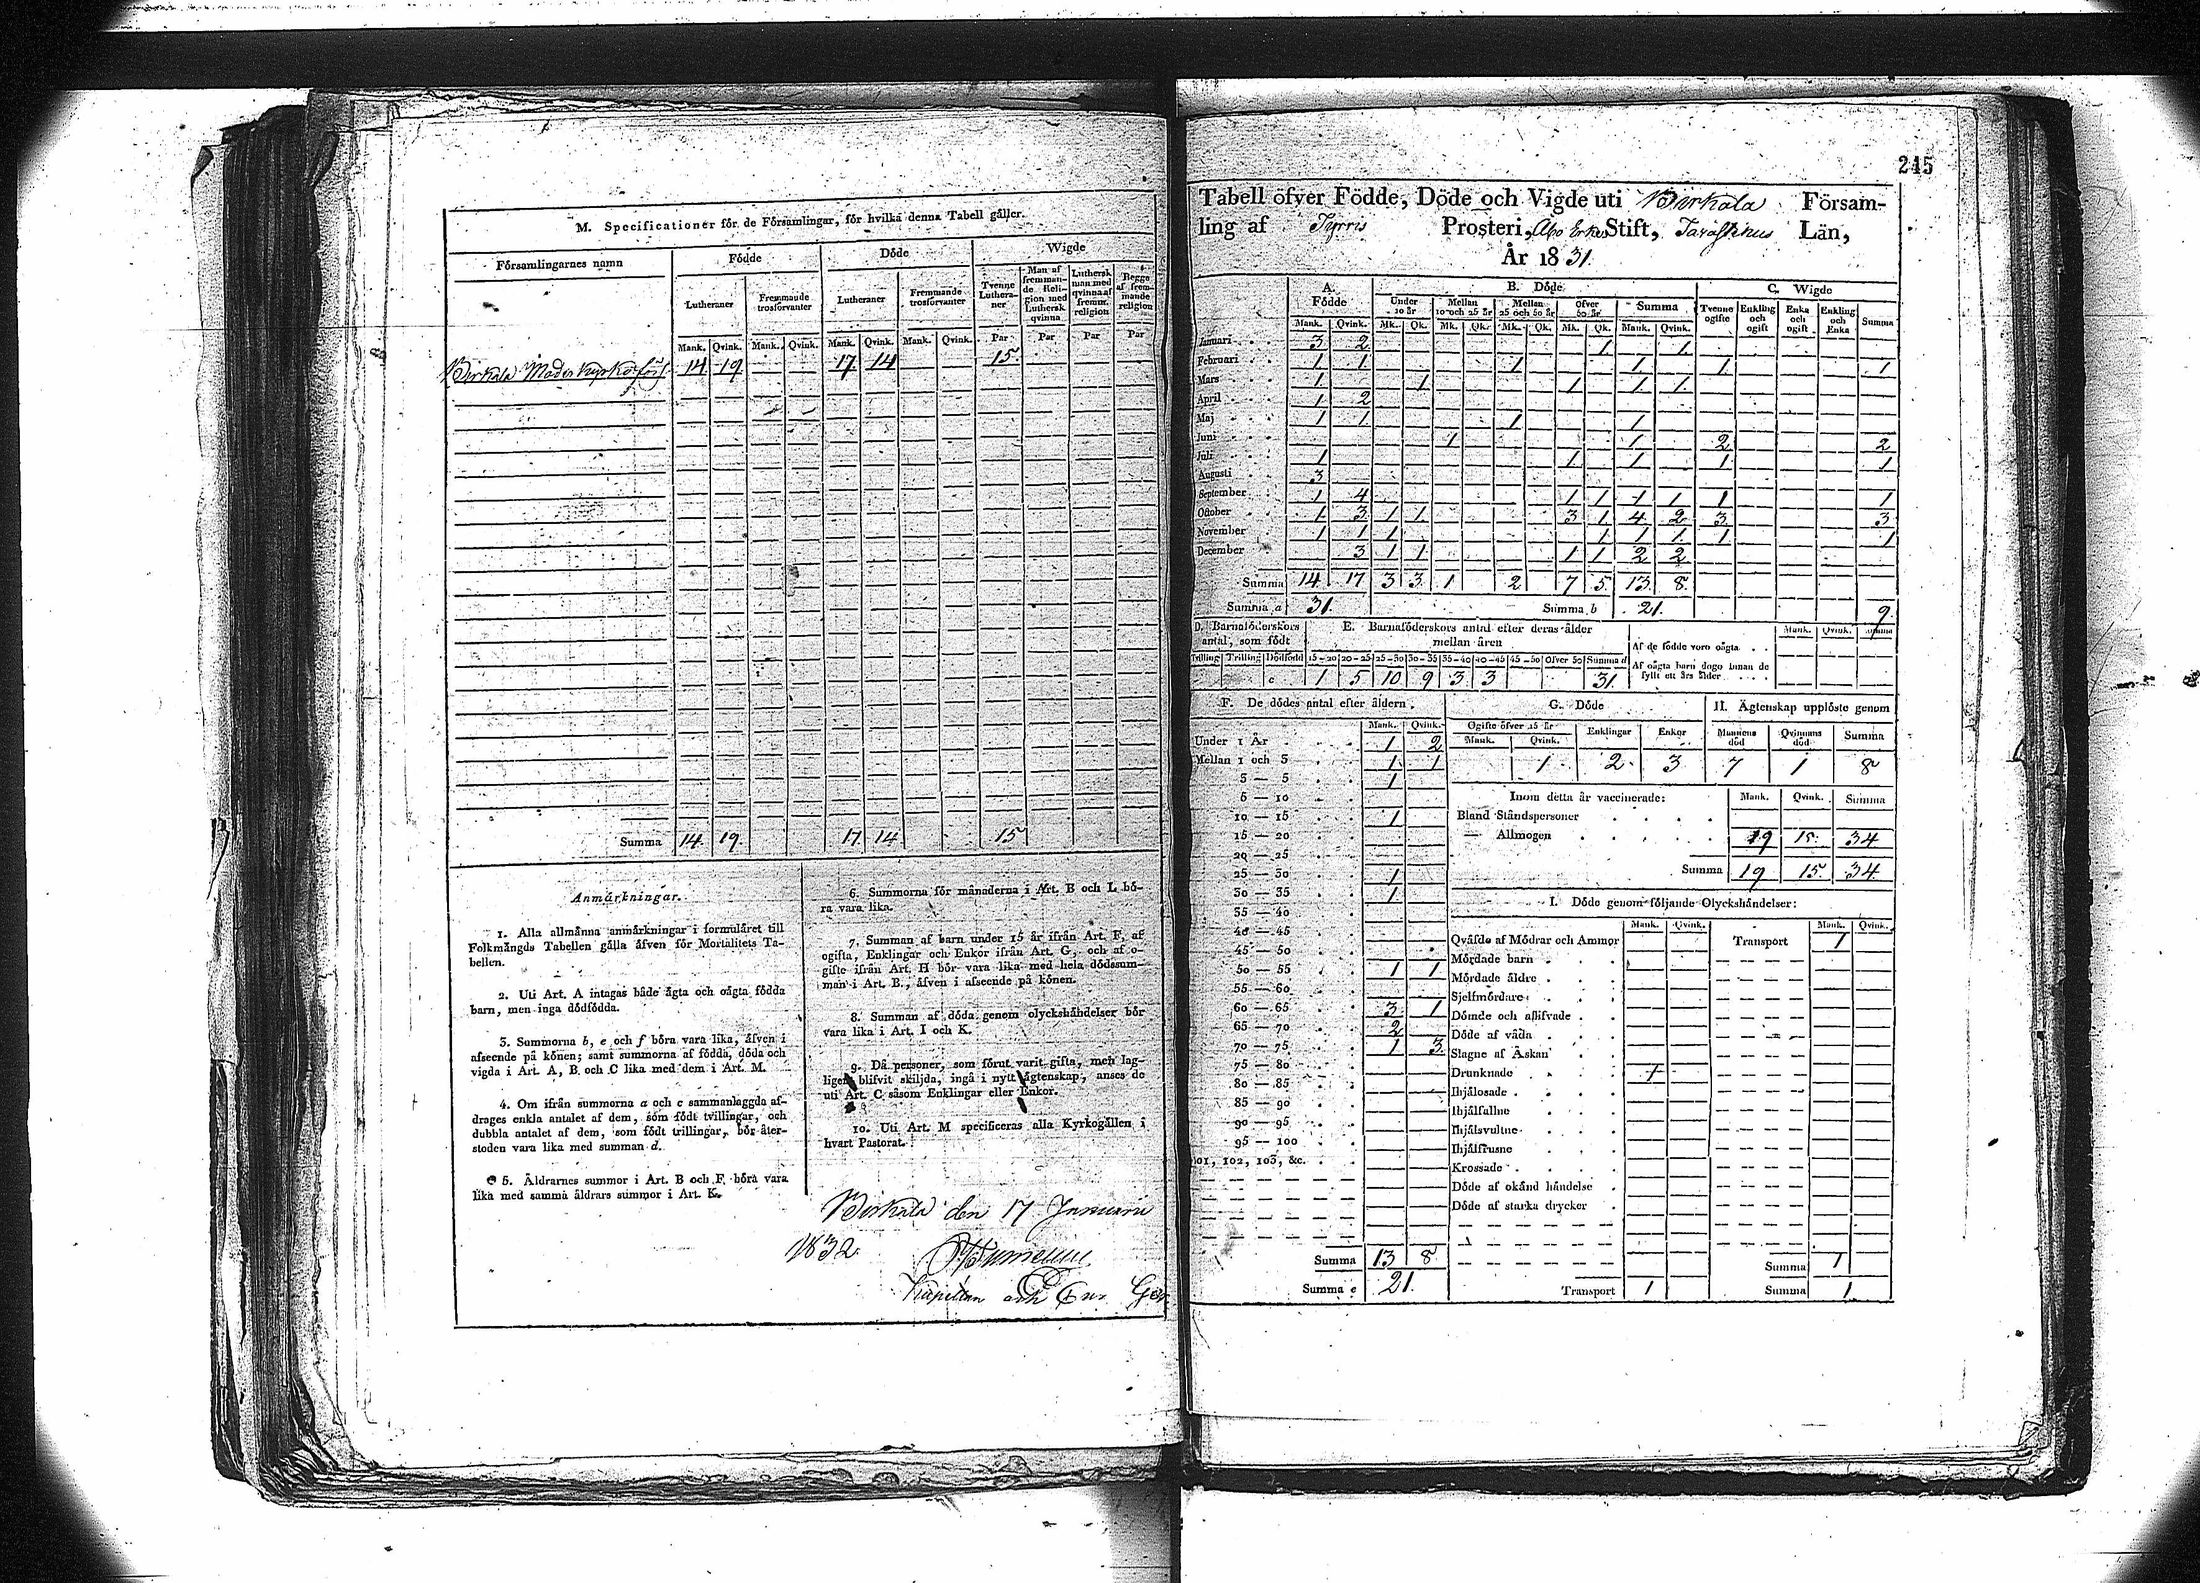 M. Specificationer för de Församlingar, för hvilka denna Tabell gäller.
Församlingarnes namn Födde Döde Wigde
Lutheraner Fremmande trosförvanter Lutheraner Fremmande trosförvanter Tvenne Lutheraner Man af fremmande Religion med Luthersk qvinna Luthersk man med qvinna af fremm. religion Begge af fremmande religion
Mank. Qvink. Mank. Qvink. Mank. Qvink. Mank. Qvink. Par Par Par Par
Birkala Moderkyrkoförs. 14 19 17 14 15
Summa 14 19 17 14 15
Anmärkningar.
1. Alla allmänna anmärkningar i formuläret till
Folkmängds Tabellen gälla äfven för Mortalitets Ta-
bellen.
2. Uti Art. A intagas både ägta och oägta födda
barn, men inga dödfödda.
3. Summorna b, e och f böra vara lika, äfven i
afseende på könen; samt summorna af födda, döda och
vigda i Art. A, B och C lika med dem i Art. M.
4. Om ifrån summorna a och c sammanlaggda af-
drages enkla antalet af dem, som födt tvillingar, och
dubbla antalet af dem, som födt trillingar, bör åter-
stoden vara lika med summan d.
5. Åldrarnes summor i Art. B och F böra vara
lika med samma åldrars summor i Art. K.
6. Summorna för månaderna i Art. B och L bö-
ra vara lika.
7. Summan af barn under 15 år ifrån Art. F, af
ogifta, Enklingar och Enkor ifrån Art. G, och af o-
gifte ifrån Art. H bör vara lika med hela dödssum-
man i Art. B., äfven i afseende på könen.
8. Summan af döda genom olyckshändelser bör
vara lika i Art. I och K.
9. Då personer, som förut varit gifta, men lag-
ligen blifvit skiljda, ingå i nytt ägtenskap, anses de
uti Art. C såsom Enklingar eller Enkor.
10. Uti Art. M specificeras alla Kyrkogällen i
hvart Pastorat.
Birkala den 17 Januari
1832.
Kapellan och
245
Tabell öfver Födde, Döde och Vigde uti Birkala Försam-
ling af Tyrvis Prosteri, Åbo Erke Stift, Tavastehus Län,
År 1831.
A. Födde B. Döde C. Wigde
Under 10 år Mellan 10 och 25 år Mellan 25 och 50 år Öfver 50 år Summa Tvenne ogifte Enkling och ogift Enka och ogift Enkling och Enka Summa
Mank. Qvink. Mk. Qk. Mk. Qk. Mk. Qk. Mk. Qk. Mank. Qvink.
Januari 3 2 1 1
Februari 1 1 1 1 1 1
Mars 1 1 1 1 1
April 1 2
Maj 1 1 1 1
Juni 1 1 2 2
Juli 1 1 1 1 1
Augusti 3
September 1 4 1 1 1 1 1 1
October 1 3 1 1 3 1 4 2 3 3
November 1 1 1 1 1 1 1 1
December 3 1 1 1 1 2 2
Summa 14 17 3 3 1 2 7 5 13 8
Summa a 31. Summa b 21. 9
D. Barnaföderskors antal, som födt E. Barnaföderskors antal efter deras ålder mellan åren Mank. Qvink. Summa
Tvilling Trilling Dödfödd 15-20 20-25 25-30 30-35 35-40 40-45 45-50 Öfver 50 Summa d
Af de födde voro oägta
c 1 5 10 9 3 3 31.
Af oägta barn dogo innan de
fyllt ett års ålder
F. De dödes antal efter åldern.
Mank. Qvink.
Under 1 År 1 2
Mellan 1 och 3 1 1
3 — 5 1
5 — 10
10 — 15 1
15 — 20
20 — 25
25 — 30 1
30 — 35 1
35 — 40
40 — 45
45 — 50
50 — 55 1 1
55 — 60
60 — 65 3 1
65 — 70 2
70 — 75 1 3
75 — 80
80 — 85
85 — 90
90 — 95
95 — 100
101, 102, 103, &c.
Summa 13 8
Summa e 21.
G. Döde H. Ägtenskap upplöste genom
Ogifte öfver 15 år Enklingar Enkor Mannens död Qvinnans död Summa
Mank. Qvink.
1 2 3 7 1 8
Inom detta år vaccinerade: Mank. Qvink. Summa
Bland Ståndspersoner
— Allmogen 19 15 34
Summa 19 15 34
I. Döde genom följande Olyckshändelser:
Mank. Qvink. Mank. Qvink.
Qväfde af Mödrar och Ammor Transport 1
Mördade barn
Mördade äldre
Sjelfmördare
Dömde och aflifvade
Döde af våda
Slagne af Åskan
Drunknade 1
Ihjälosade
Ihjälfallne
Ihjälsvultne
Ihjälfrusne
Krossade
Döde af okänd händelse
Döde af starka drycker
Summa 1
Transport 1 Summa 1